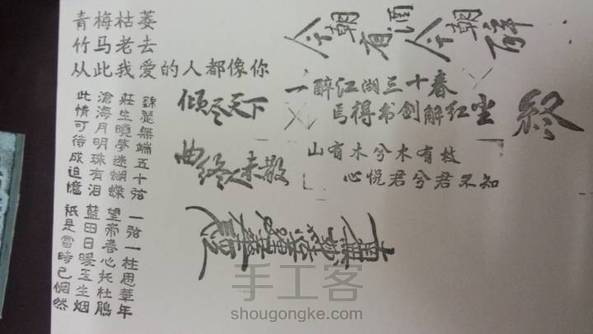 青梅枯萎
竹马老去
从此我爱的人都像你
今朝有酒今朝醉
倾尽天下
一醉江湖三十春
焉得书剑解红尘
终
曲终人未散
山有木兮木有枝
心悦君兮君不知
錦瑟無端五十弦
一弦一柱思華年
莊生曉夢迷蝴蝶
望帝春心托杜鵑
滄海月明珠有泪
藍田日暖玉生烟
此情可待成追憶
祇是當時已惘然
手工客
shougongke.com